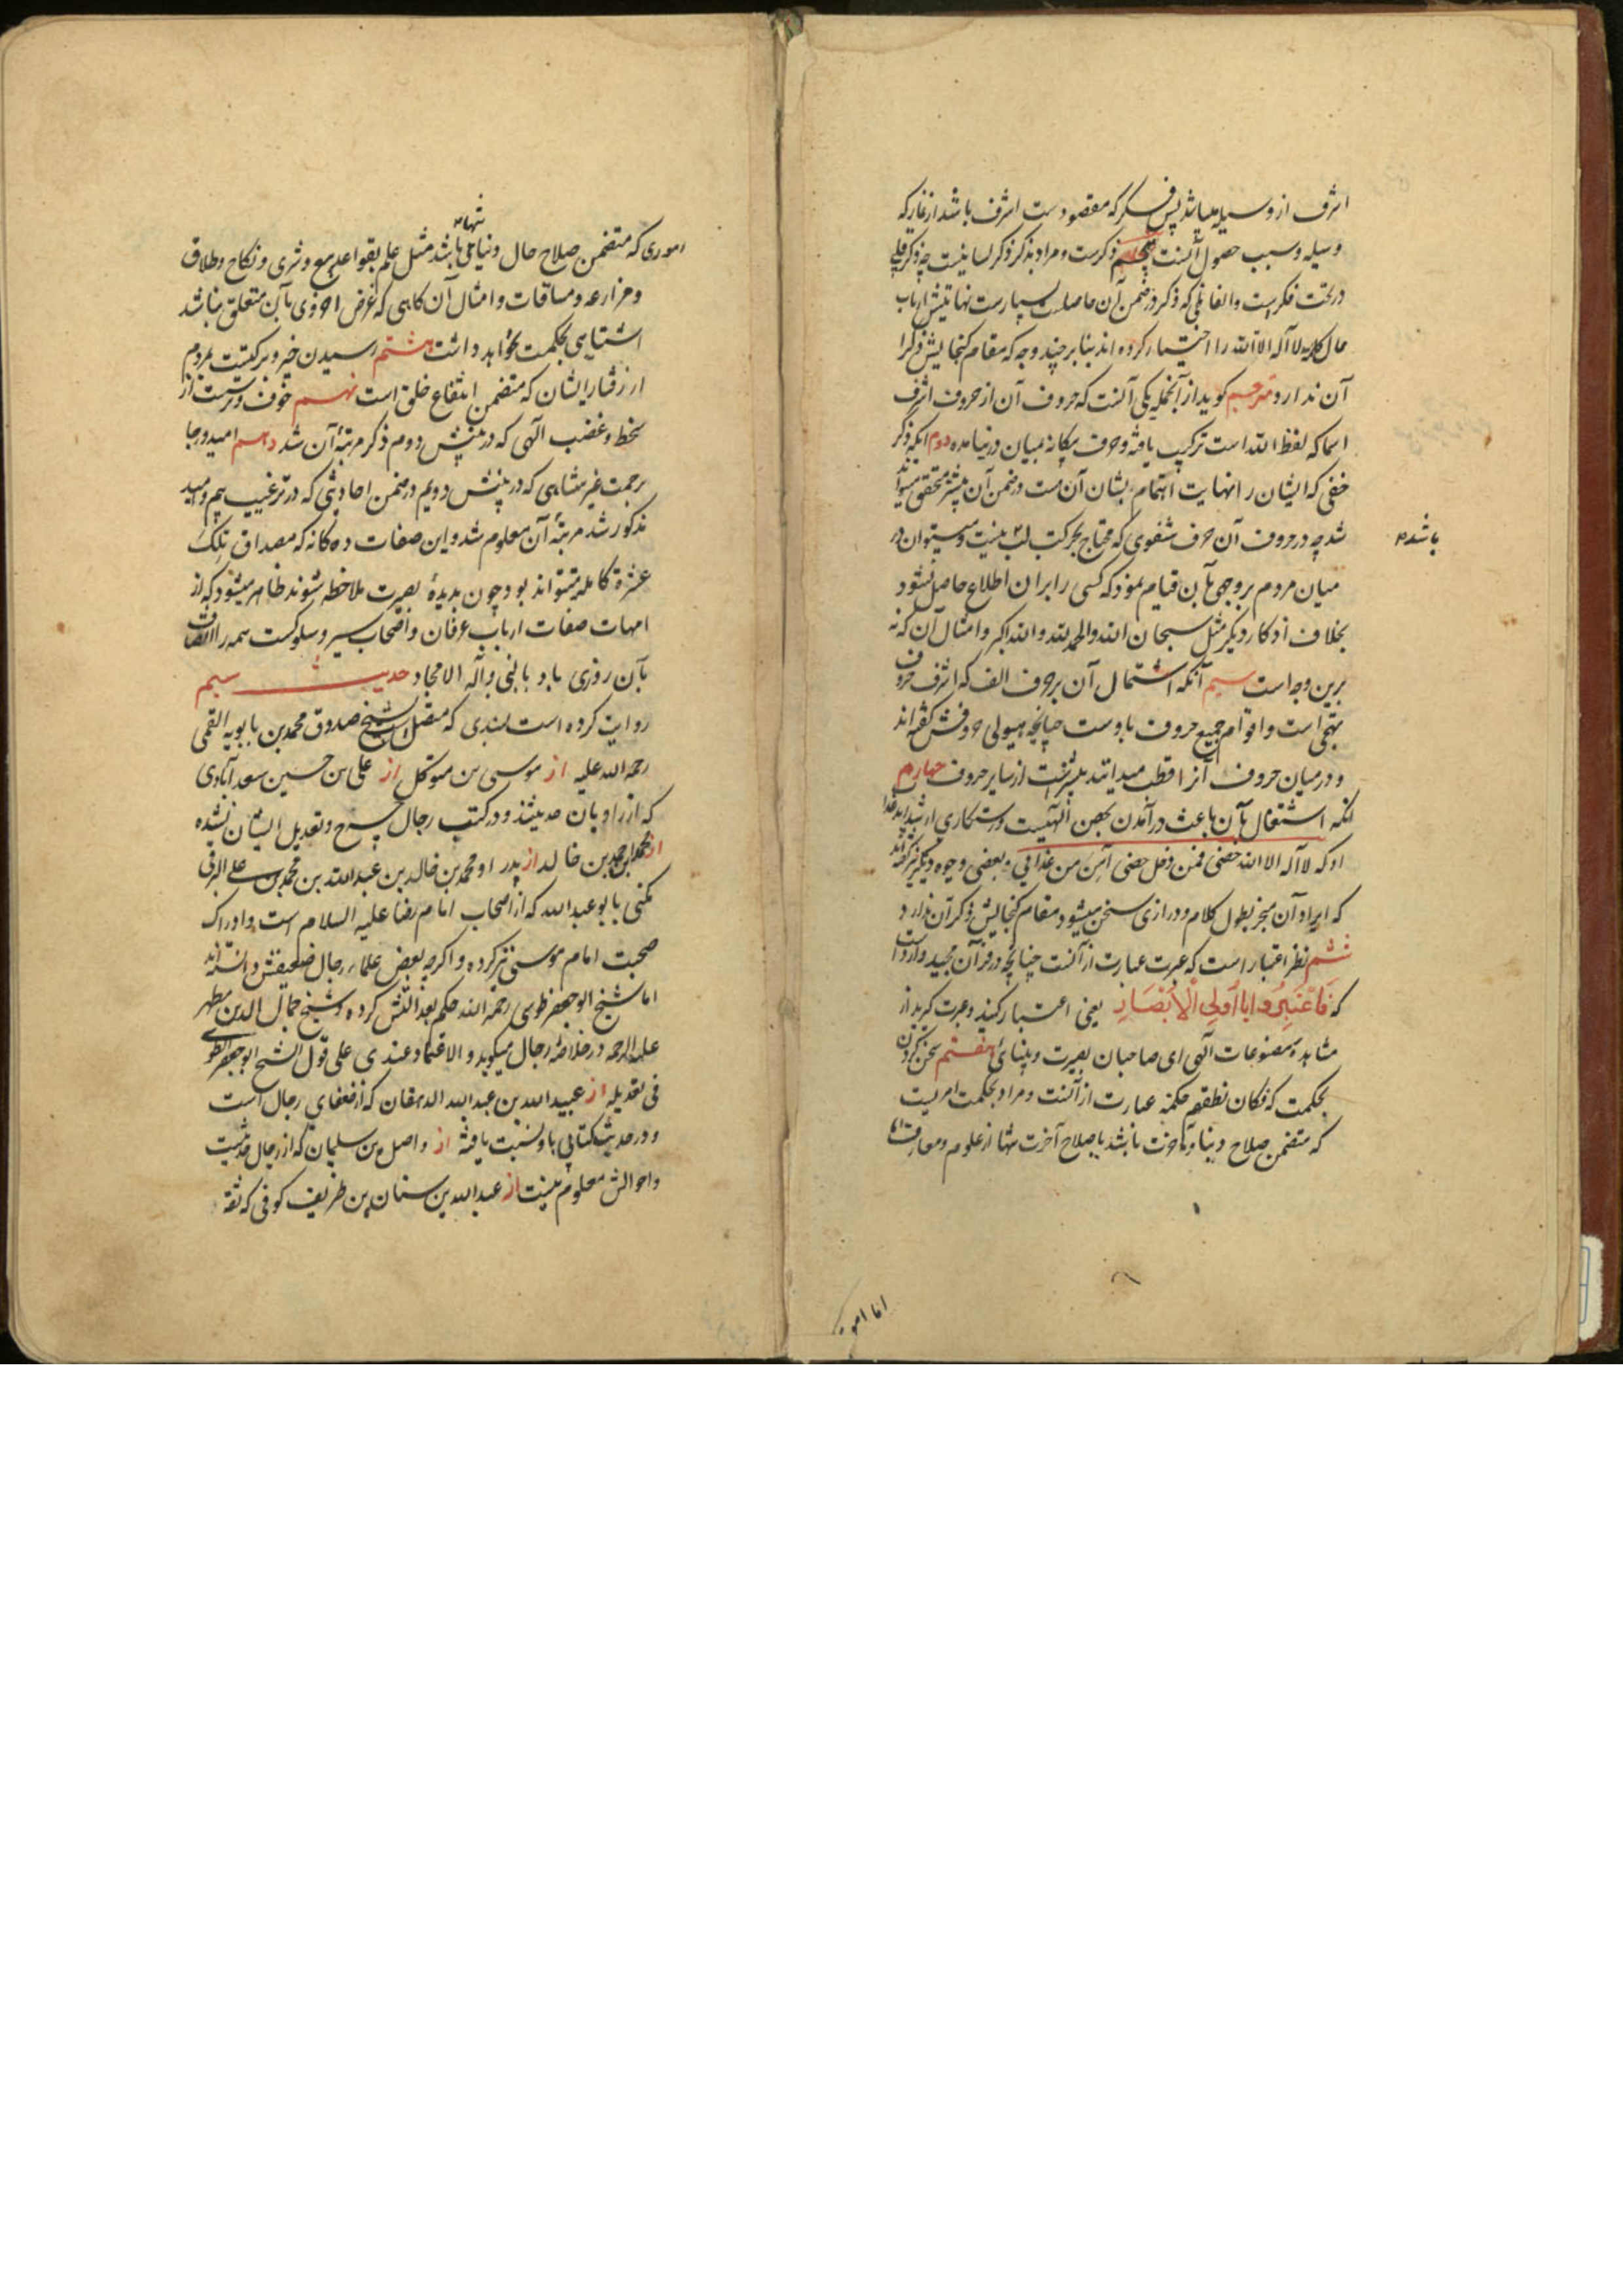 اشرف از وسیله میباشد پس فکر که مقصودست اشرف باشد از نماز که
وسیله و سبب حصول آنست پنجم ذکرست و مراد بذکر ذکر لسانیست چه ذکر قلبی
در تحت فکر است و الفاظی که ذکر در ضمن آن حاصلست بسیارست نهایتش ارباب
حال کلمه لا اله الا الله را اختیار کرده اند بنا بر چند وجه که مقام کنجایش ذکر
آن ندارد و مترجم کوید از آنجمله یکی آنست که حروف آن از حروف اشرف
اسما که لفظ الله است ترکیب یافته و حرف بیکانه بمیان در نیامده دوم آنکه ذکر
خفی که ایشان را نهایت اهتمام بشان آن هست در ضمن آن بیشتر محقق میتواند
شد چه در حروف آن حرف شفوی که محتاج بحرکت لب نیست و میتوان در
باشد
میان مردم بر وجهی بآن قیام نمود که کسی را بران اطلاع حاصل نشود
بخلاف اذکار دیکر مثل سبحان الله و الحمد لله و الله اکبر و امثال آن که نه
برین وجه است سیم آنکه اشتمال آن بر حرف الف که اشرف حروف
تهجی است و اقوام جمیع حروف باوست چنانچه هیولی حروفش کفته اند
و در میان حروف آنرا قطب میدانند بیشترست از سایر حروف چهارم
آنکه اشتغال بآن باعث درآمدن بحصن الهیست و رستکاری از
او که لا اله الا الله حصنی فمن دخل حصنی آمن من عذابی و بعضی وجوه دیکر نیز کفته اند
که ایراد آن منجر بطول کلام و درازی سخن میشود مقام کنجایش ذکر آن ندارد
ششم نظر اعتبار است که عبرت عبارت از آنست چنانچه در قرآن مجید وارد است
که فَاعْتَبِرُوا یا اُولِی الْاَبْصَارِ یعنی اعتبار کنید و عبرت کیرید از
مشاهده مصنوعات آلهی ای صاحبان بصیرت و بینائی هفتم سخن کردن
بحکمت که فکان نطقهم حکمة عبارت از آنست و مراد بحکمت امریست
که متضمن صلاح دنیا و آخرت باشد یا صلاح آخرت تنها از علوم و معارف اما
اما امور
اموری که متضمن صلاح حال دنیا تنها باشد مثل علم بقواعد بیع و شری و نکاح و طلاق
و مزارعه و مساقات و امثال آن کاهی که غرض اخروی بآن متعلق نباشد
اشتباهی بحکمت نخواهد داشت هشتم رسیدن خیر و برکتست بمردم
از رفتار ایشان که متضمن انتفاع خلق است نهم خوف و ترست از
سخط و غضب الهی که در پیش دوم ذکر مرتبهٔ آن شد دهم امید و رجا
برحمت غیر متناهی که در پیش دویم در ضمن احادیثی که در ترغیب بیم و امید
مذکور شد مرتبهٔ آن معلوم شد و این صفات ده کانه که مصداق تلک
عشرة کامله میتواند بود چون بدیدهٔ بصیرت ملاحظه شوند ظاهر میشود که از
امهات صفات ارباب عرفان و اصحاب سیر و سلوکست همه را اتصاف
بآن روزی باد بالنبی و آله الامجاد حدیث سیم
روایت کرده است بسندی که متصل است شیخ صدوق محمد بن بابویه القمی
رحمه الله علیه از موسی بن متوکل از علی بن حسین سعدآبادی
که از راویان حدیثند و در کتب رجال جرح و تعدیل ایشان نشده
از احمد بن محمد بن خالد از پدر او محمد بن خالد بن عبد الله بن محمد بن علی البرقی
مکنی بابو عبدالله که از اصحاب امام رضا علیه السلام است و ادراک
صحبت امام موسی نیز کرده و اکرچه بعضی علماء رجال ضعیفش دانسته اند
اما شیخ ابو جعفر طوسی رحمة الله حکم بعدالتش کرده و شیخ جمال الدین مطهر
علیه الرحمه در خلاصهٔ رجال میکوید و الاعتماد عندی علی قول الشیخ ابو جعفر الطوسی
فی تعدیله از عبید الله بن عبد الله الدهقان که از ضعفای رجال است
و در حدیث کتابی باو نسبت یافته از واصل بن سلیمان که از رجال حدیثست
و احوالش معلوم نیست از عبدالله بن سنان بن ظریف کوفی که ثقه